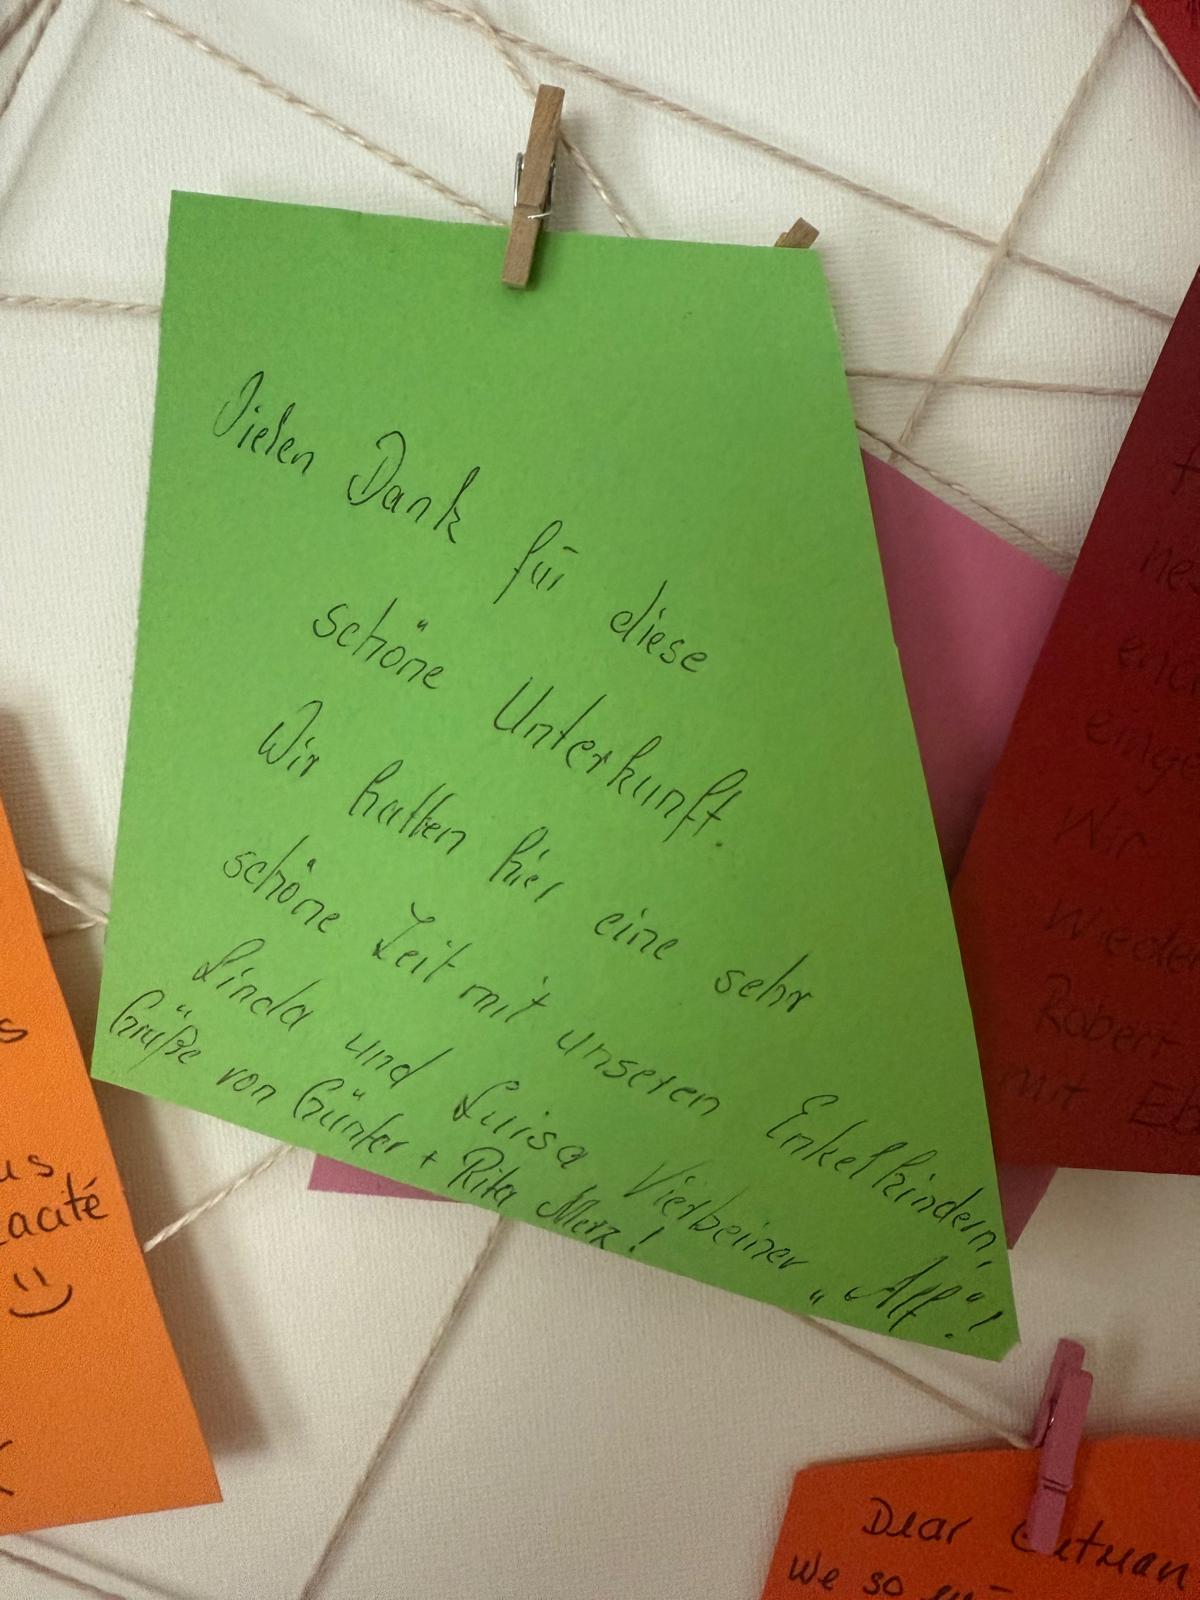 Vielen Dank für diese
schöne Unterkunft.
Wir hatten hier eine sehr
schöne Zeit mit unseren Enkelkindern,
Linda und Luisa Vierbeiner „Alf“!
Grüße von Günter + Rita Merz!
nes
einge
Wir
Wieder
Robert
mit Eb
s
us
acité
Dear Gutman
We so